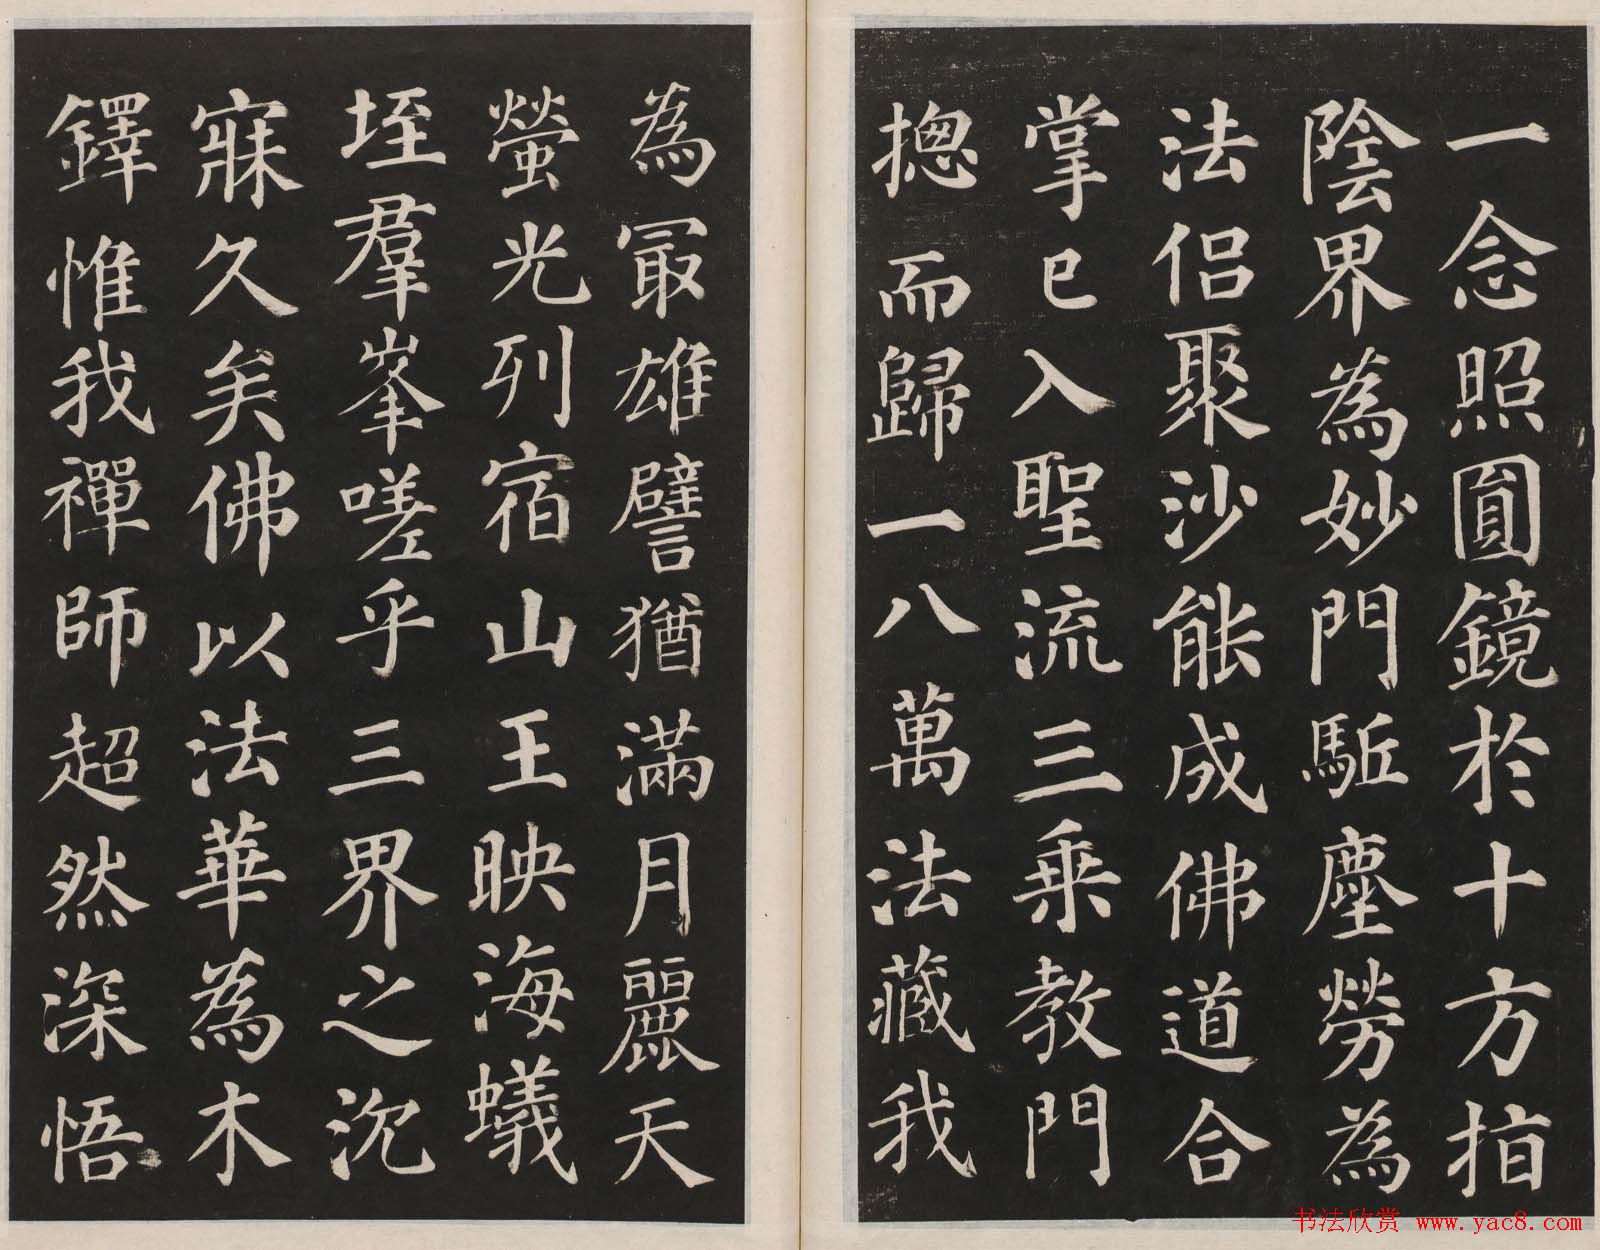 一念照圓鏡於十方指
陰界為妙門駈塵勞為
法侣聚沙能成佛道合
掌已入聖流三乘教門
揔而歸一八萬法藏我
為冣雄譬猶滿月麗天
螢光列宿山王映海蟻
垤羣峯嗟乎三界之沉
寐久矣佛以法華為木
鐸惟我禪師超然深悟
书法欣赏 www.yac8.com